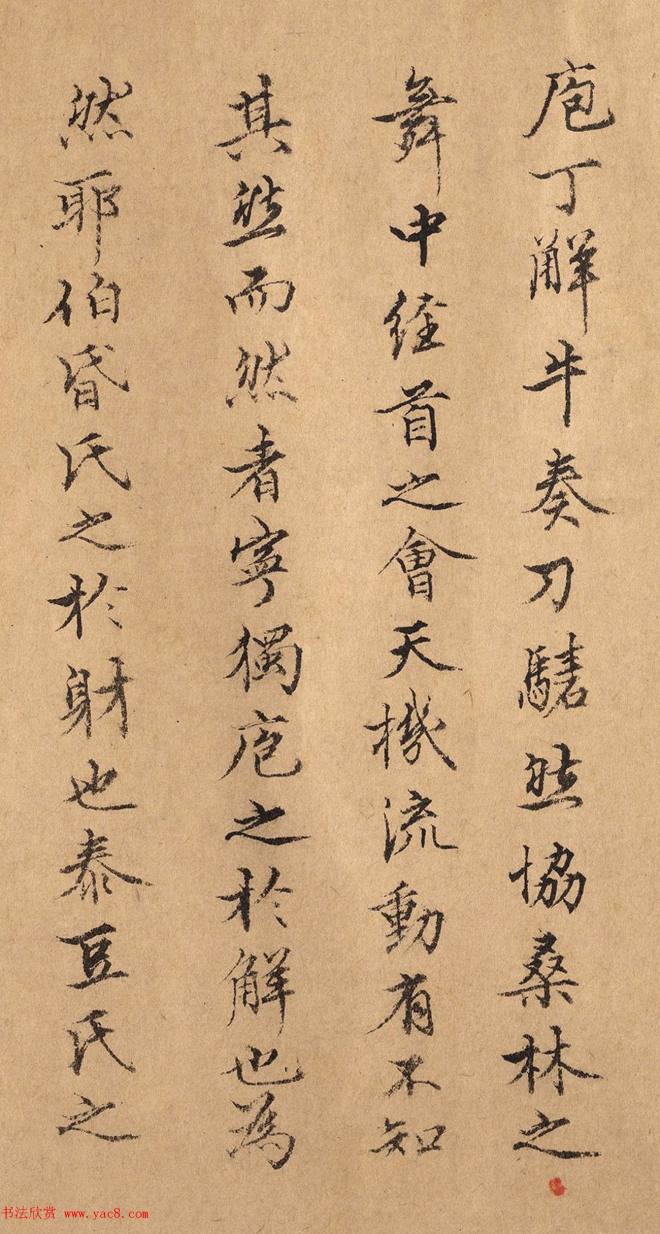 庖丁解牛奏刀騞然協桑林之
舞中經首之會天機流動有不知
其然而然者寧獨庖之於解也為
然耶伯昏氏之於射也泰豆氏之
书法欣赏 www.yac8.com